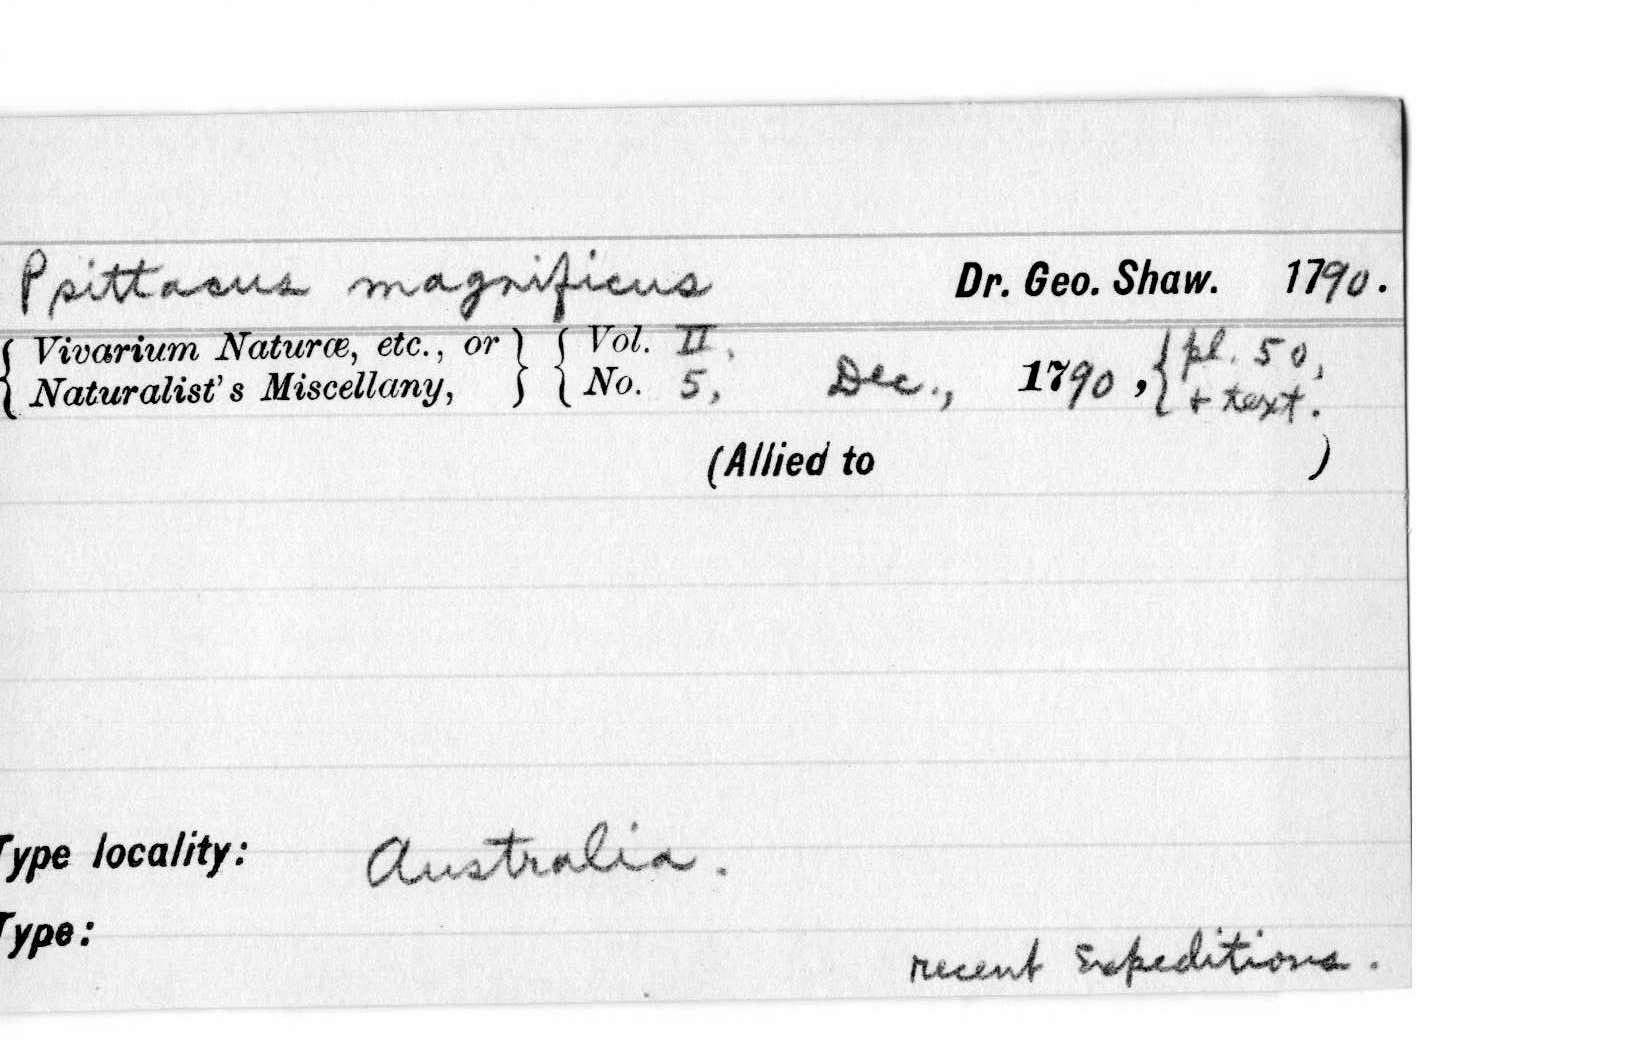 Psittacus magnificus Dr. Geo. Shaw. 1790.
{ Vivarium Naturæ, etc., or } { Vol. II,
{ Naturalist's Miscellany, } { No. 5, Dec., 1790, { pl. 50, + text.
(Allied to )
Type locality: Australia.
Type:
recent Expeditions.